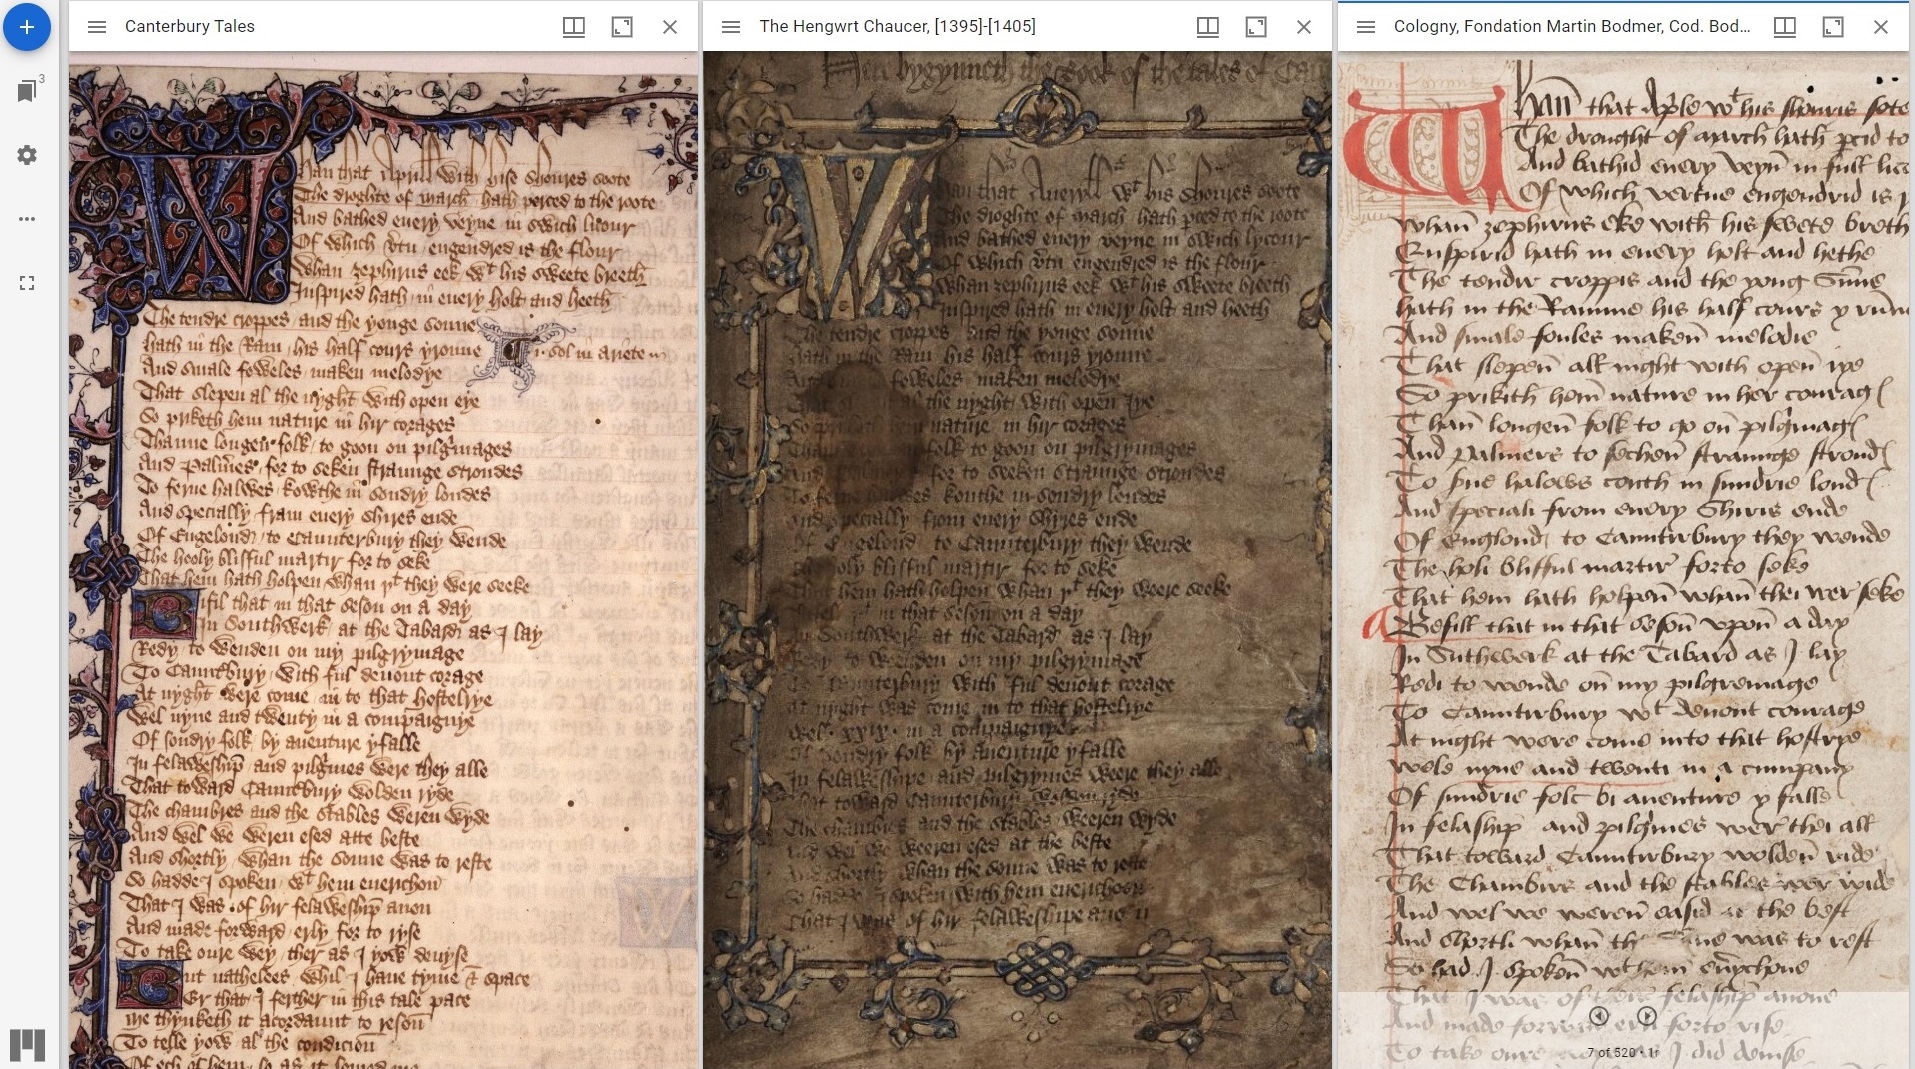 Canterbury Tales
Whan that Aprill with hise shoures soote
The droghte of march hath perced to the roote
And bathed euery veyne in swich licour
Of which vtu engendred is the flour
Whan zephirus eek wt his sweete breeth
Inspired hath in euery holt and heeth
The tendre croppes and the yonge sonne
hath in the Ram his half cours yronne
.i. sol in ariete
And smale foweles maken melodye
That slepen al the nyght with open eye
So priketh hem nature in hir corages
Thanne longen folk to goon on pilgrimages
And Palmeres for to seken straunge strondes
To ferne halwes kowthe in sondry londes
And specially fram euery shires ende
Of Engelond to Caunterbury they wende
The hooly blisful martir for to seke
That hem hath holpen whan yt they were seeke
Bifil that in that seson on a day
In Southwerk at the Tabard as I lay
Redy to wenden on my pilgrymage
To Caunterbury with ful deuout corage
At nyght were come in to that hostelrye
Wel nyne and twenty in a compaignye
Of sondry folk by auenture yfalle
In felaweship and pilgrimes were they alle
That toward Caunterbury wolden ryde
The chambres and the stables weren wyde
And wel we weren esed atte beste
And shortly whan the sonne was to reste
So hadde I spoken wt hem euerichon
That I was of hir felaweship anon
And made forward erly for to ryse
To take oure wey ther as I yow deuyse
But nathelees whil I haue tyme & space
Er that I ferther in this tale pace
Me thynketh it acordaunt to reson
To telle yow al the condicion
Of ech of hem so as it semed me
The Hengwrt Chaucer, [1395]-[1405]
Here bygynneth the Book of the tales of Cau
Whan that Aueryll wt his shoures soote
The droghte of march hath pced to the roote
And bathed euery veyne in swich lycour
Of which vtu engendred is the flour
Whan zephirus eek wt his sweete breeth
Inspired hath in euery holt and heeth
The tendre croppes and the yonge sonne
hath in the Ram his half cours yronne
And foweles maken melodye
al the nyght with open Iye
hem nature in hir corages
folk to goon on pilgrymages
And for to seeken straunge strondes
To ferne halwes kouthe in sondry londes
And specially from euery shyres ende
Of Engelond to Caunterbury they wende
The holy blisful martir for to seke
That hem hath holpen whan yt they weere seeke
Bifel yt in that seson on a day
In Southwerk at the Tabard as I lay
Redy to weenden on my pilgrymage
To Caunterbury with ful deuout corage
At nyght was come in to that hostelrye
Wel .xxix. in a compaignye
Of sondry folk by auenture yfalle
In felaweshipe and pilgrymes weere they alle
That toward Caunterbury wolden ryde
The chambres and the stables weeren wyde
And wel we weeren esed at the beste
And shortly whan the sonne was to reste
So hadde I spoken with hem euerichon
That I was of hir felaweshipe anon
Cologny, Fondation Martin Bodmer, Cod. Bod...
Whan that Aple wt his shouris sote
The drought of march hath pcid to
And bathid euery veyn in full lico
Of which vertue engendrid is
Whan zephirus eke with his swete breth
Enspirid hath in euery holt and hethe
The tendir croppis and the yong Sunne
hath in the Ramme his half cours y
And smale foules maken melodie
That slepen all night with open iye
So prikith hem nature in her courag
Than longen folk to go on pilgrimag
And palmers to sechen straunge strond
To halows couth in sundrie lond
And speciali from euery Shiris ende
Of Englond to Caunturbury they wende
The holi blissful martir forto seke
That hem hath holpen whan thei wer seke
Besill that in that seson vpon a day
In Suthwerk at the Tabard as I lay
Redi to wende on my pilgremage
To Caunturbury wt deuout courage
At night were come into that hostrye
Wele nyne and twenti in a cumpany
Of sundrie folc bi auenture y falle
In felaship and pilgimes wer thei all
That toward Caunturbury wolden ride
The Chambirs and the stables wer wide
And wel we weren easid at the best
And shortli whan the Sunne was to rest
So had I spoken wt hem
That I was of their felaship anone
And made forward erli forto rise
To take oure I did deuise
3
7 of 520 • 1r